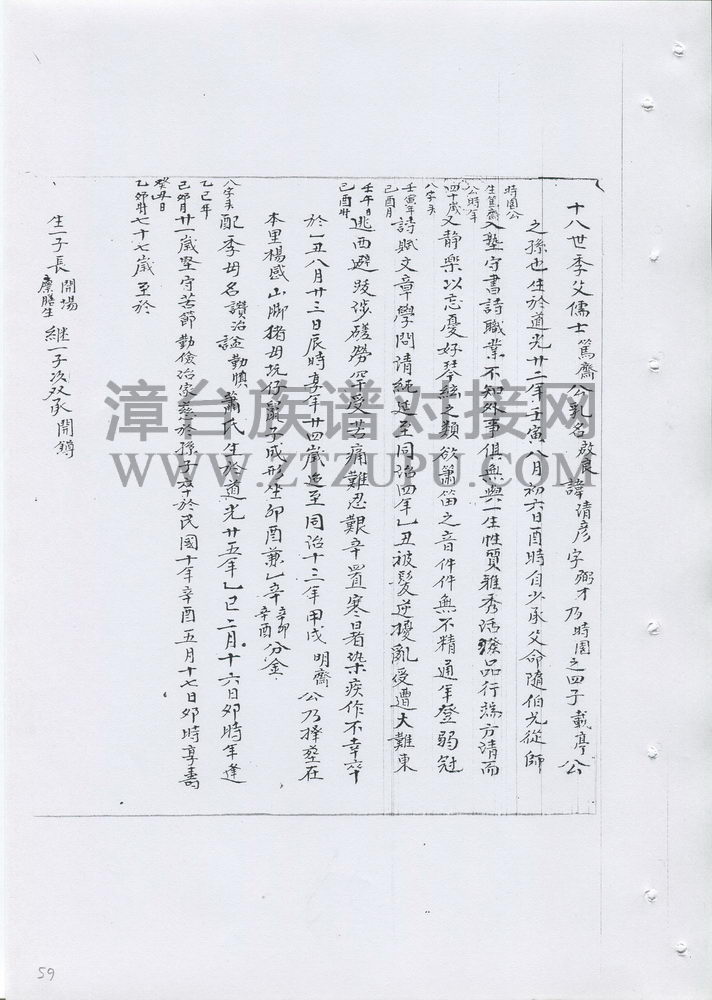 十八世季父儒士篤齋公乳名啟晨諱清彥字弼才乃時園之四子載亭公
之孫也生於道光廿二年壬寅八月初六日酉時自少承父命隨伯兄從師
時園公
生篤齋
公時年
四十歲
入塾守書詩職業不知外事俱無與一生性質雅秀活潑品行端方清而
又靜樂以忘憂好琴絃之類欲簫笛之音件件無不精通年登弱冠
八字夫
壬寅年
己酉月
壬午日
己酉时
詩賦文章學問清純延至同治四年乙丑被髮逆擾亂受遭大難東
逃西避跋涉磋勞罕受苦痛難忍艱辛冒寒日暑染疾作不幸卒
於乙丑八月廿三日辰時享年廿四歲造至同治十三年甲戌明齋公乃擇葬在
本里楊感山腳猪母坑仔鼠子成形坐卯酉兼乙辛
辛卯
辛酉
分金
八字夫
乙巳年
己卯月
癸丑日
乙卯时
配季母名讚治諡勤慎蕭氏生於道光廿五年乙巳二月十六日卯時年逢
廿一歲堅守苦節勤儉治家慈於孫子卒於民國十年辛酉五月十七日卯時享壽
七十七歲至於
生一子長
開場
廩膳生
繼一子次双承開鏄
漳台族谱对接网
WWW.ZTZUPU.COM
59